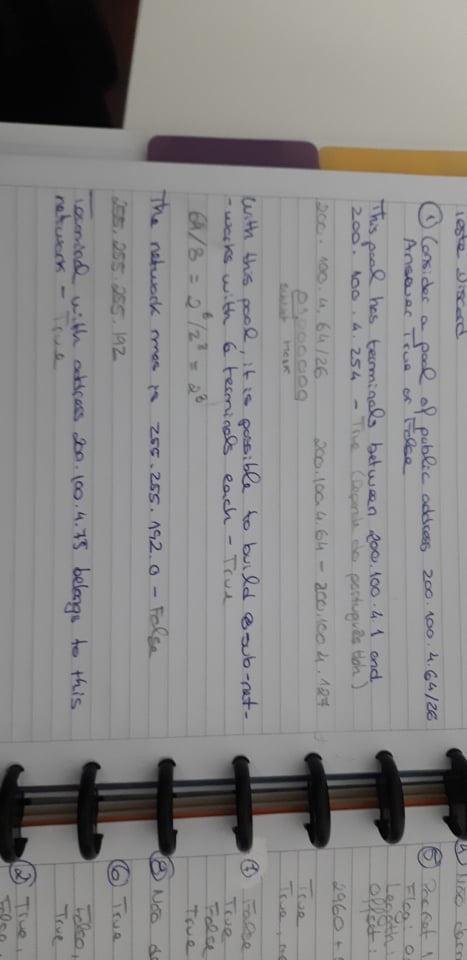 Teste Discord
① Consider a pool of public address 200.100.4.64/26
Answer True or False
This pool has terminals between 200.100.4.1 and
200.100.4.254 - True (Depende do português tbh)
200.100.4.64/26 200.100.4.64 - 200.100.4.127
subnet Host
With this pool, it is possible to build 8 sub-net-
-works with 6 terminals each - True
64/8 = 2^6/2^3 = 2^3
The network mas is 255.255.192.0 - False
255.255.255.192
Terminal with address 200.100.4.75 belongs to this
network - True
④ Não
⑤ Packet
Flag: 0
Length:
Offset:
2960 +
True
True,
⑦ False
True
False
True
⑧ Não
⑥ True
False,
True
② True,
False,